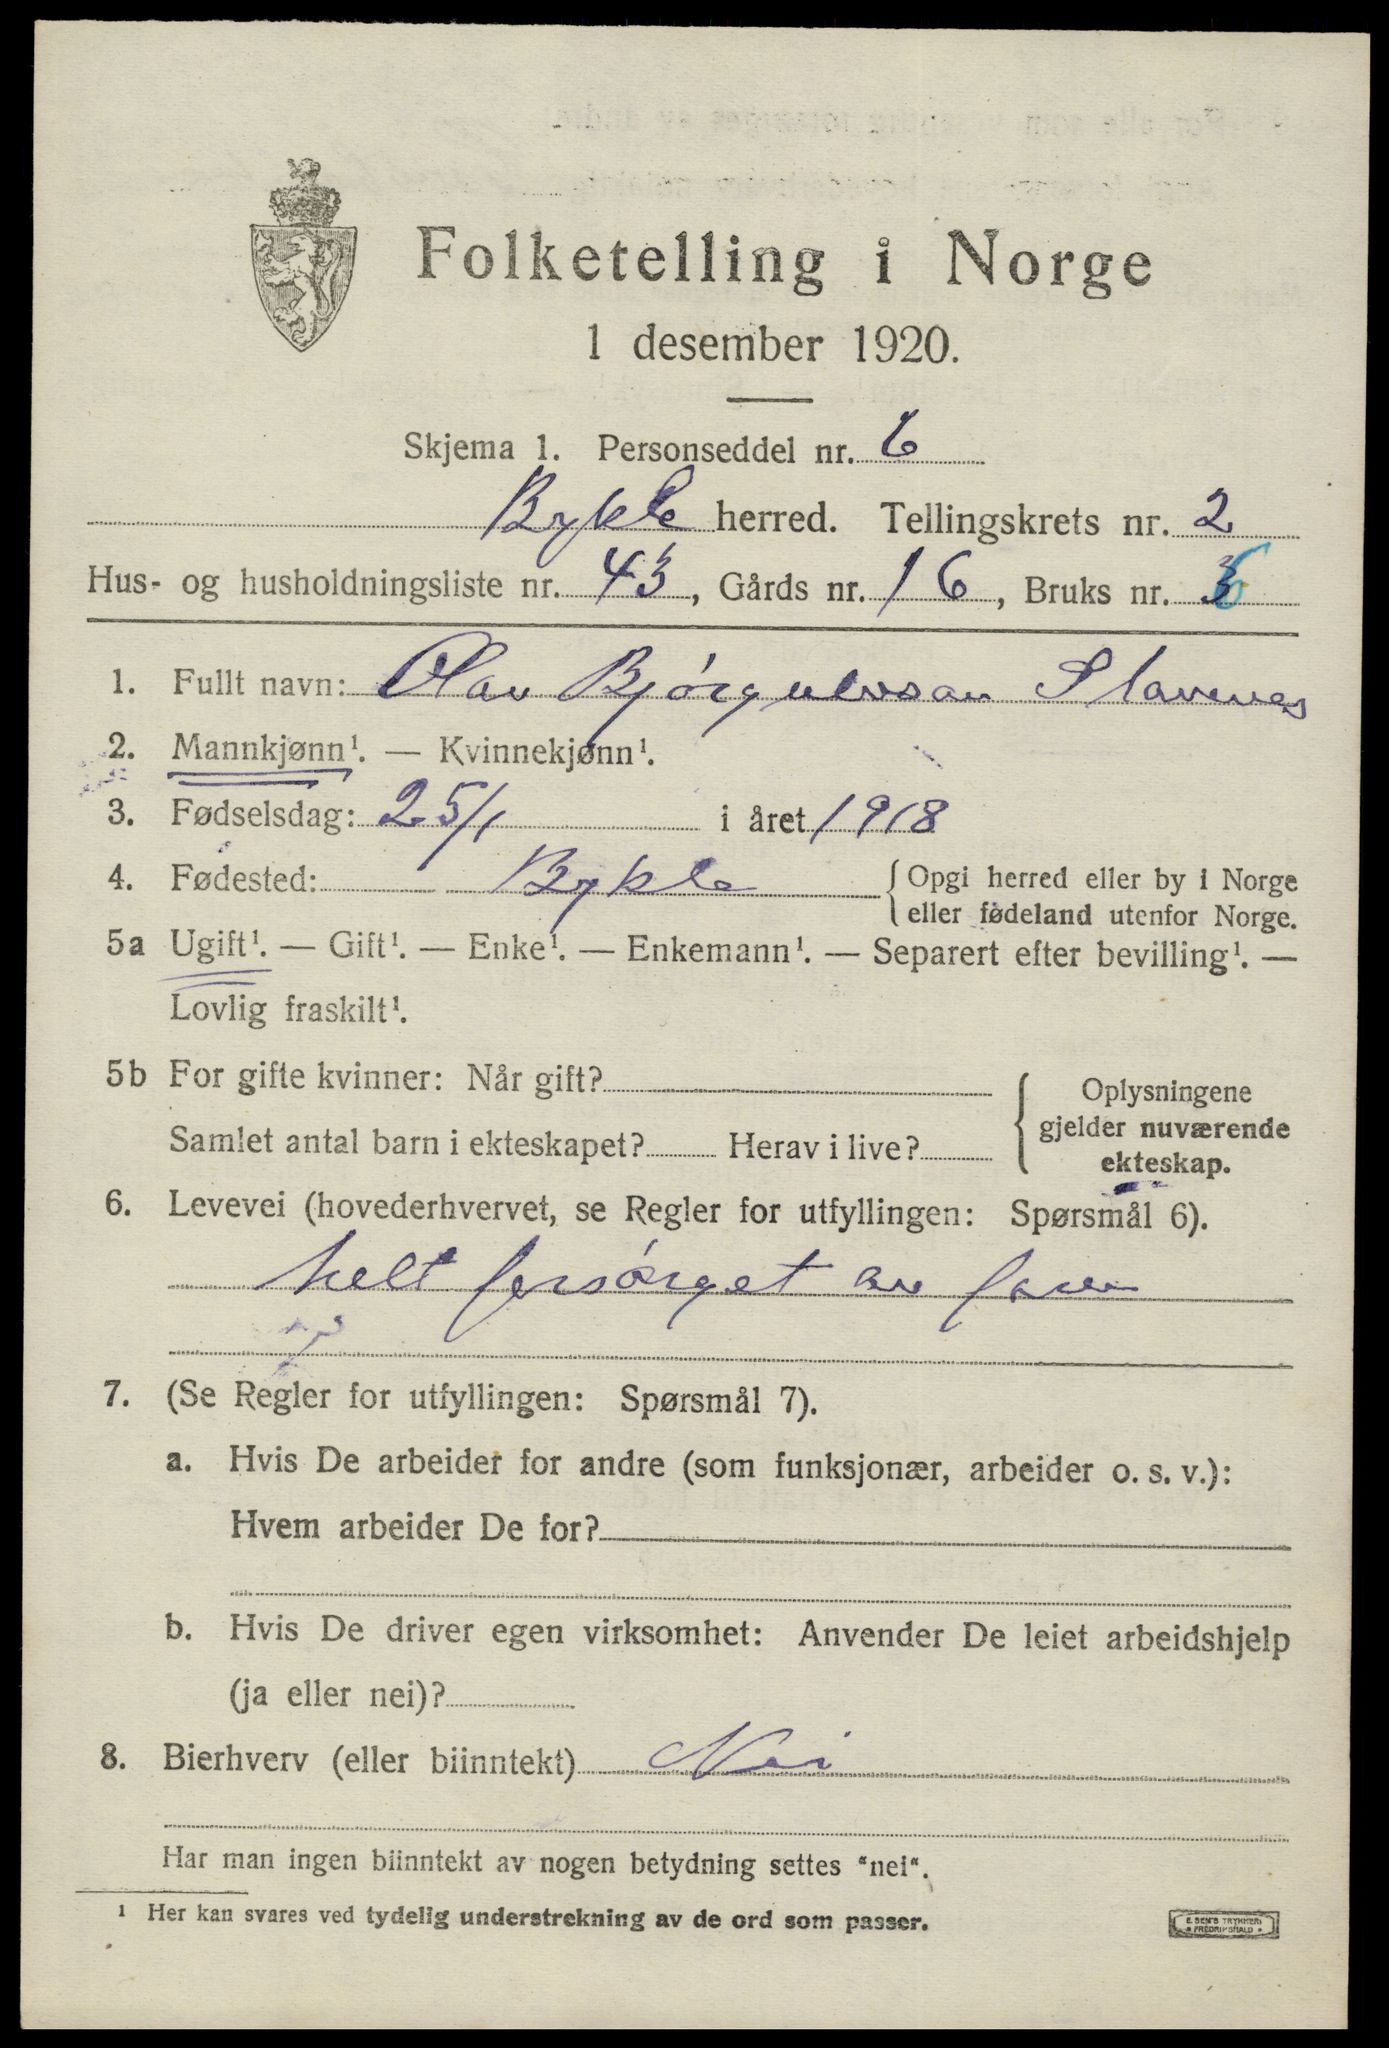 Folketelling i Norge
1 desember 1920.
Skjema 1. Personseddel nr. 6
Bykle herred. Tellingskrets nr. 2
Hus- og husholdningsliste nr. 43, Gårds nr. 16, Bruks nr. 6
1. Fullt navn: Olav Bjørgulvsøn Stavenes
2. Mannkjønn¹. — Kvinnekjønn¹.
3. Fødselsdag: 25/1 i året 1918
4. Fødested: Bykle {Opgi herred eller by i Norge
eller fødeland utenfor Norge.
5a Ugift¹. — Gift¹. — Enke¹. — Enkemann¹. — Separert efter bevilling¹. —
Lovlig fraskilt¹.
5b For gifte kvinner: Når gift?
Samlet antal barn i ekteskapet? Herav i live?
Oplysningene
gjelder nuværende
ekteskap.
6. Levevei (hovederhvervet, se Regler for utfyllingen: Spørsmål 6).
helt forsørget av faren
7. (Se Regler for utfyllingen: Spørsmål 7).
a. Hvis De arbeider for andre (som funksjonær, arbeider o. s. v.):
Hvem arbeider De for?
b. Hvis De driver egen virksomhet: Anvender De leiet arbeidshjelp
(ja eller nei)?
8. Bierhverv (eller biinntekt) Nei
Har man ingen biinntekt av nogen betydning settes "nei".
¹ Her kan svares ved tydelig understrekning av de ord som passer.
E. SEM'S TRYKKERI
• FREDRIKSHALD •